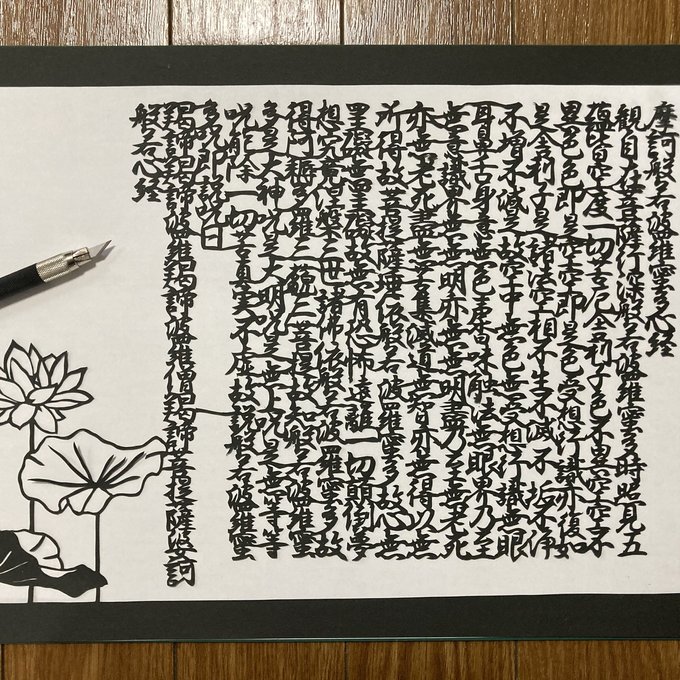 摩訶般若波羅蜜多心経
観自在菩薩行深般若波羅蜜多時照見五
蘊皆空度一切苦厄舎利子色不異空空不
異色色即是空空即是色受想行識亦復如
是舎利子是諸法空相不生不滅不垢不浄
不増不減是故空中無色無受想行識無眼
耳鼻舌身意無色声香味触法無眼界乃至
無意識界無無明亦無無明盡乃至無老死
亦無老死盡無苦集滅道無智亦無得以無
所得故菩提薩埵依般若波羅蜜多故心無
罣礙無罣礙故無有恐怖遠離一切顛倒夢
想究竟涅槃三世諸佛依般若波羅蜜多故
得阿耨多羅三藐三菩提故知般若波羅蜜
多是大神呪是大明呪是無上呪是無等等
呪能除一切苦真実不虚故説般若波羅蜜
多呪即説呪曰
羯諦羯諦波羅羯諦波羅僧羯諦菩提薩婆訶
般若心経